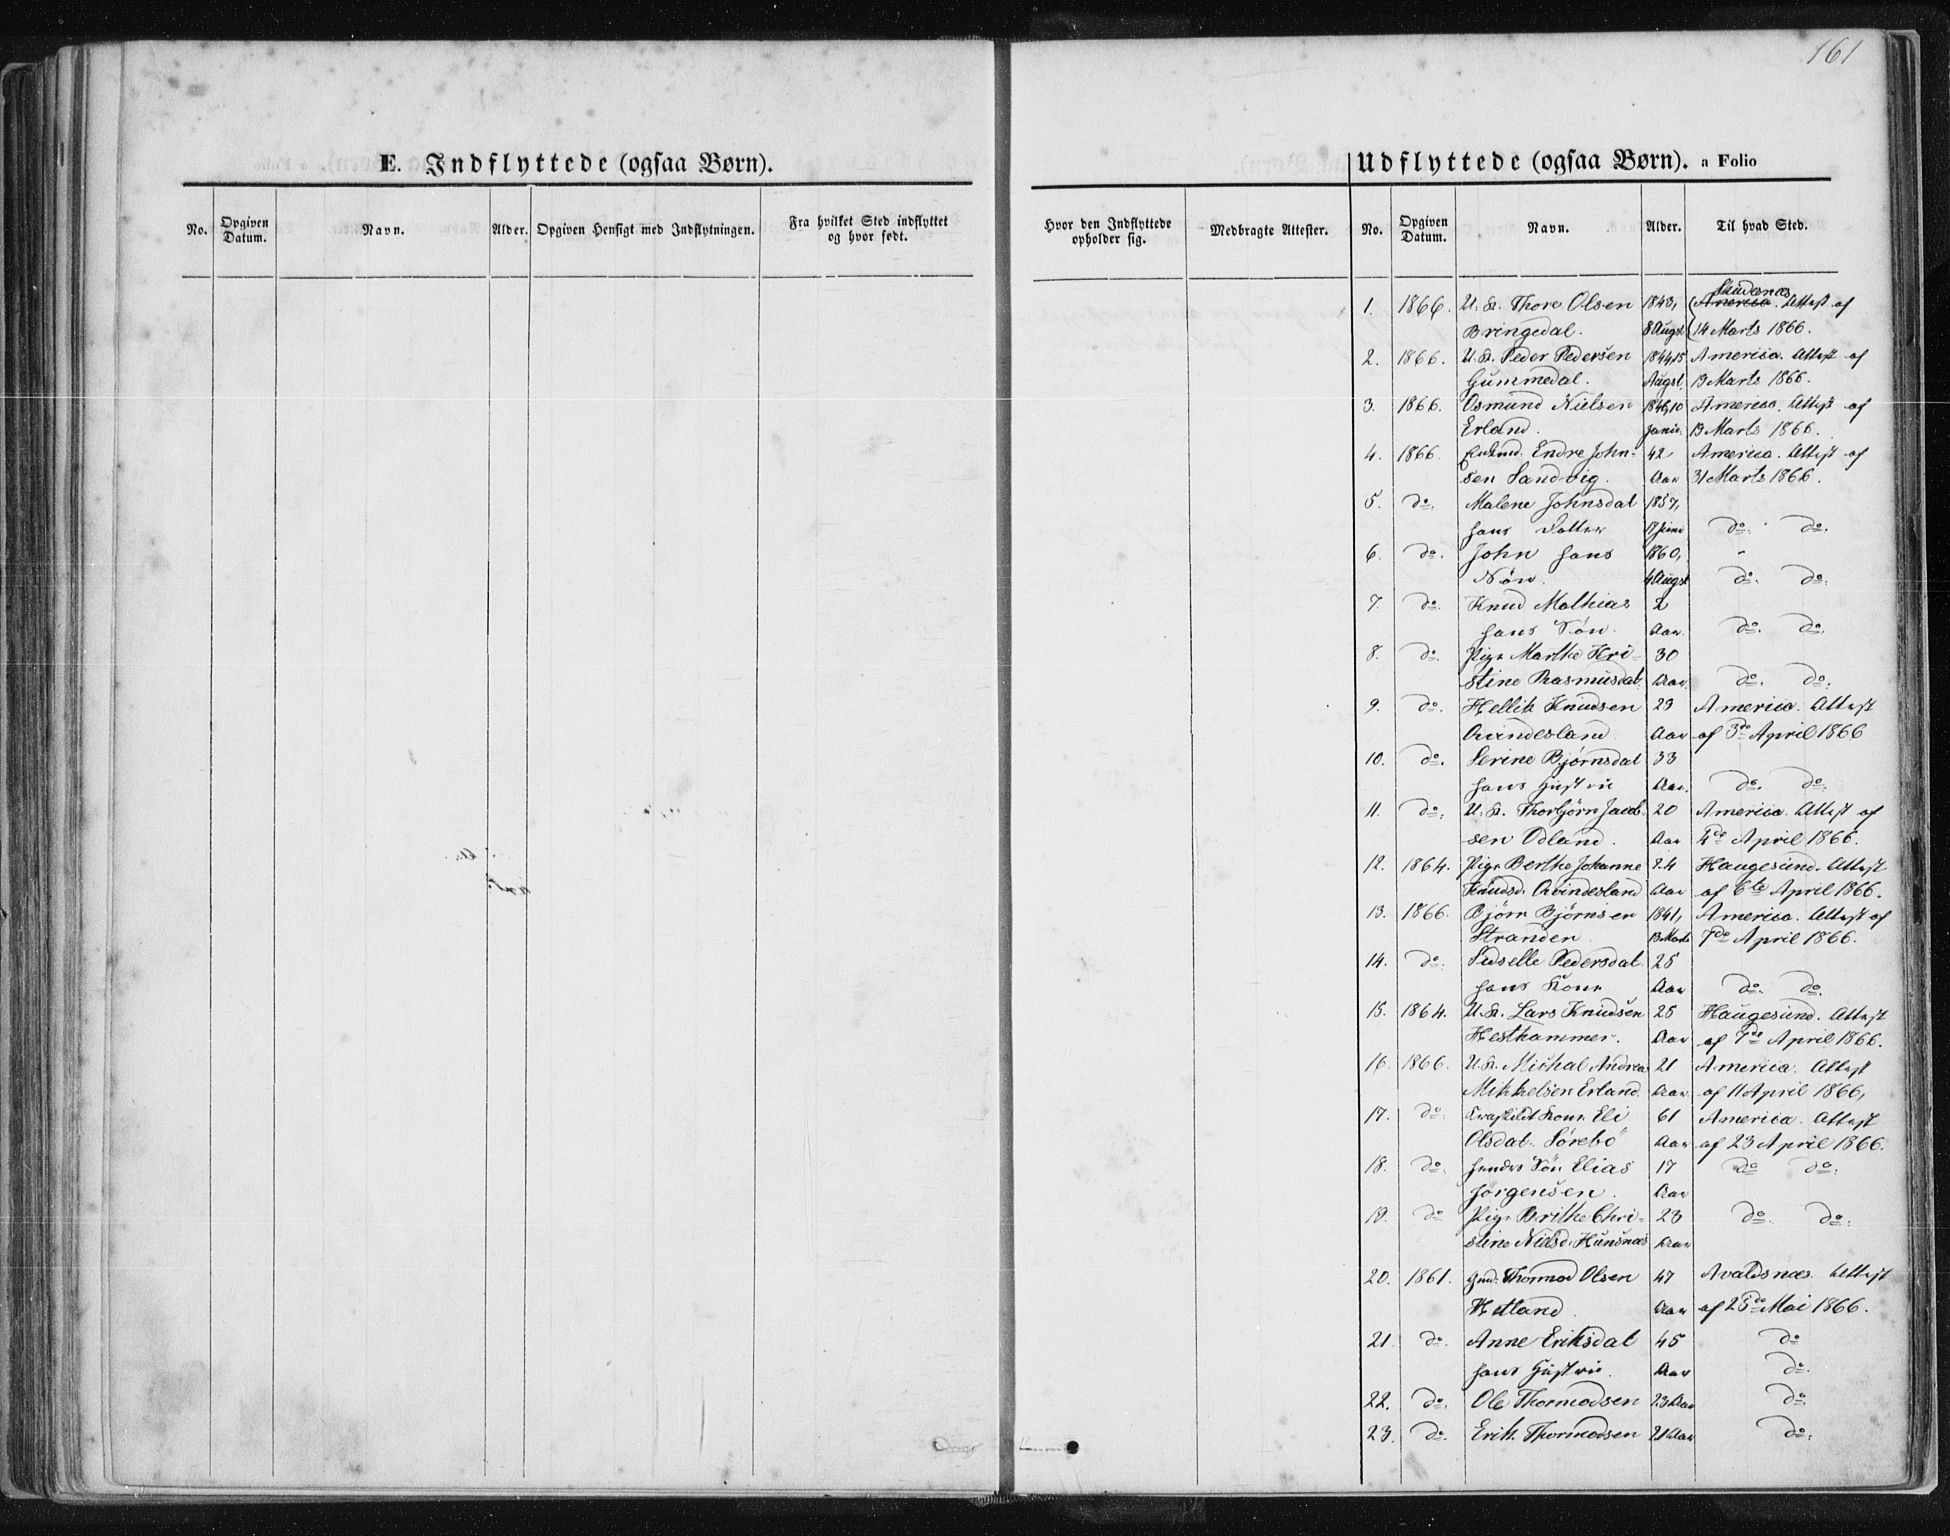 161
E. Indflyttede (ogsaa Børn).
Udflyttede (ogsaa Børn). a Folio
No. Opgiven Datum. Navn. Alder. Opgiven Hensigt med Indflytningen. Fra hvilket Sted indflyttet og hvor født.
Hvor den Indflyttede opholder sig. Medbragte Attester. No. Opgiven Datum. Navn. Alder. Til hvad Sted.
Skudesnæs
1. 1866. U. K. Thore Olsen 1843, America. Attest af
Bringedal. 8 Augst 14 Marts 1866.
2. 1866. U. K. Peder Pedersen 1844, 15 America. Attest af
Gummedal. Augst. 13 Marts 1866.
3. 1866. Osmund Nielsen 1846, 10 America. Attest af
Erland. Janu. 13 Marts 1866.
4. 1866. Endre John- 42 America. Attest af
sen Sandvig. Aar 31 Marts 1866.
5. do. Malene Johnsdat 1857,
hans Datter 17 Juni do. do.
6. do. John hans 1860,
Søn. 4 Augst do. do.
7. do. Knud Mathias 2
hans Søn. Aar. do. do.
8. do. Pige Marthe Kri- 30
stine Rasmusdat. Aar. do. do.
9. do. Hellik Knudsen 29 America. Attest
Qvindesland Aar af 3de April 1866
10. do. Serine Bjørnsdat 33
hans Hustru Aar. do. do.
11. do. U. K. Thorbjørn Jacob- 20 America. Attest af
sen Odland. Aar 4de April 1866.
12. 1864. Pige Berthe Johanne 24 Haugesund. Attest
Knudsd. Qvindesland Aar af 6te April 1866.
13. 1866. Bjørn Bjørnsen 1841, America. Attest af
Stranden 13 Marts 7de April 1866.
14. do. Sidselle Pedersdat 25
hans Kone Aar do. do.
15. 1864. U. K. Lars Knudsen 25 Haugesund. Attest
Hesthammer. Aar af 7de April 1866.
16. 1866. U. K. Michal Andreas 21 America. Attest
Mikkelsen Erland. Aar. af 11 April 1866,
17. do. Kone Eli 61 America. Attest
Olsdat. Sørebø Aar af 23 April 1866.
18. do. hendes Søn Elias 17 do do.
Jørgensen. Aar
19. do Pige Brithe Chri- 23 do. do.
stine Nielsd. Hunsnæs Aar
20. 1861. Gmd. Thormod Olsen 47 Avaldsnæs. Attest
Hetland. Aar af 25de Mai 1866.
21. do. Anne Eriksdat 45 do
hans Hustru. Aar do.
22. do. Ole Thormodsen 23 Aar do.
23. do. Erik Thormodsen 21 Aar do.